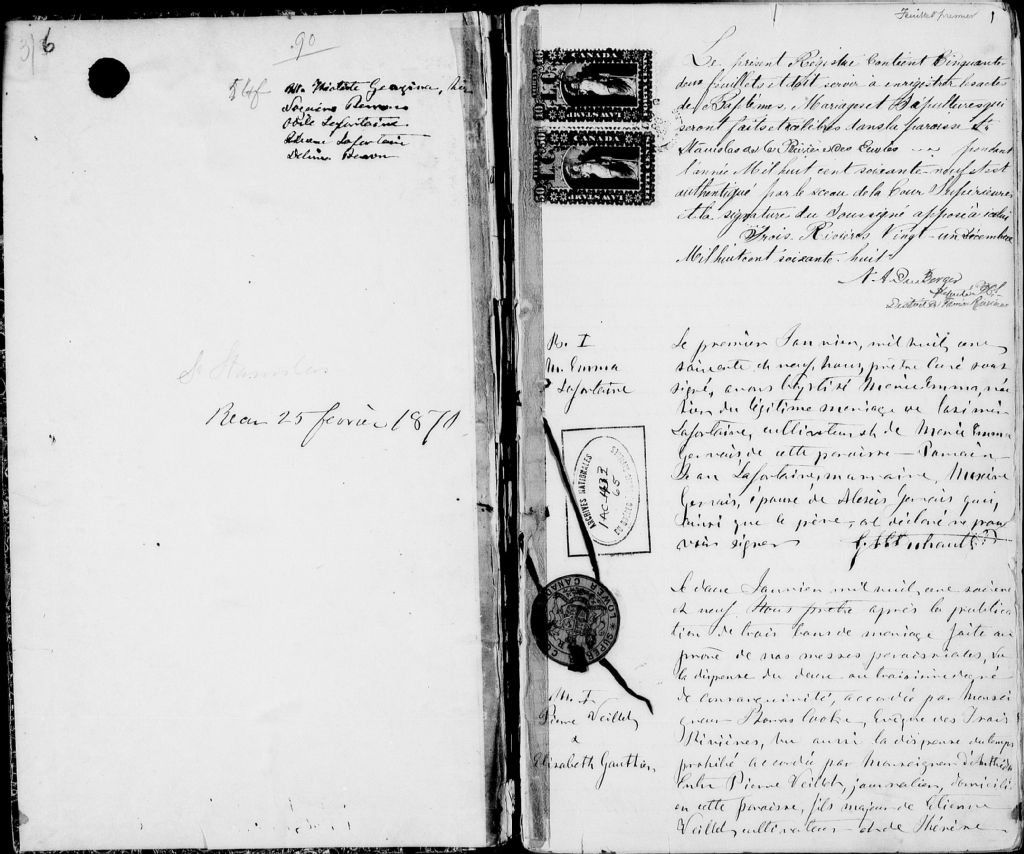 3/6
.90
Georgina
Odile Lafontaine
Lafontaine
St Stanislas
25 février 1870
Feuillet premier 1
CANADA
LAW STAMP
CANADA
LAW STAMP
Le présent Régistre Contient Cinquante
deux feuillets et doit servir à enrégistrer les actes
de Baptêmes, Mariages et Sépultures qui
seront faits et célébrés dans la paroisse St
Stanislas de la Rivière des Envies pendant
l'année Mil huit cent soixante-neuf et est
authentiqué par le sceau de la Cour Supérieure
et la signature du Soussigné apposée icelui
Trois-Rivières Vingt-un Décembre
Mil huit cent soixante-huit
B. I
M. Emma
Lafontaine
Le premier Janvier, mil huit cent
soixante et neuf, nous, prêtre curé sous
signé, avons baptisé Marie Emma, née
du légitime mariage de
Lafontaine, cultivateur et de Marie Emma
Gervais de cette paroisse - Parrain
Jean Lafontaine, marraine,
Gervais, épouse de Alexis Gervais qui,
ainsi que le père, ont déclaré ne pou
voir signer
ARCHIVES NATIONALES
SUPERIOR COURT
LOWER CANADA
M. I
Pierre Veillet
&
Elisabeth Gauthier
Le deux Janvier mil huit cent soixante
et neuf Nous prêtre après la publica
tion de trois bans de mariage faite au
prône de nos messes paroissiales, vu
la dispense du deux au troisième degré
de consanguinité, accordée par Monsei
gneur Thomas Cooke, Evêque des Trois
Rivières, vu aussi la dispense du temps
prohibé accordée par Monseigneur
Entre Pierre Veillet, journalier, domicilié
en cette paroisse, fils majeur de Etienne
Veillet cultivateur et de Thérèse